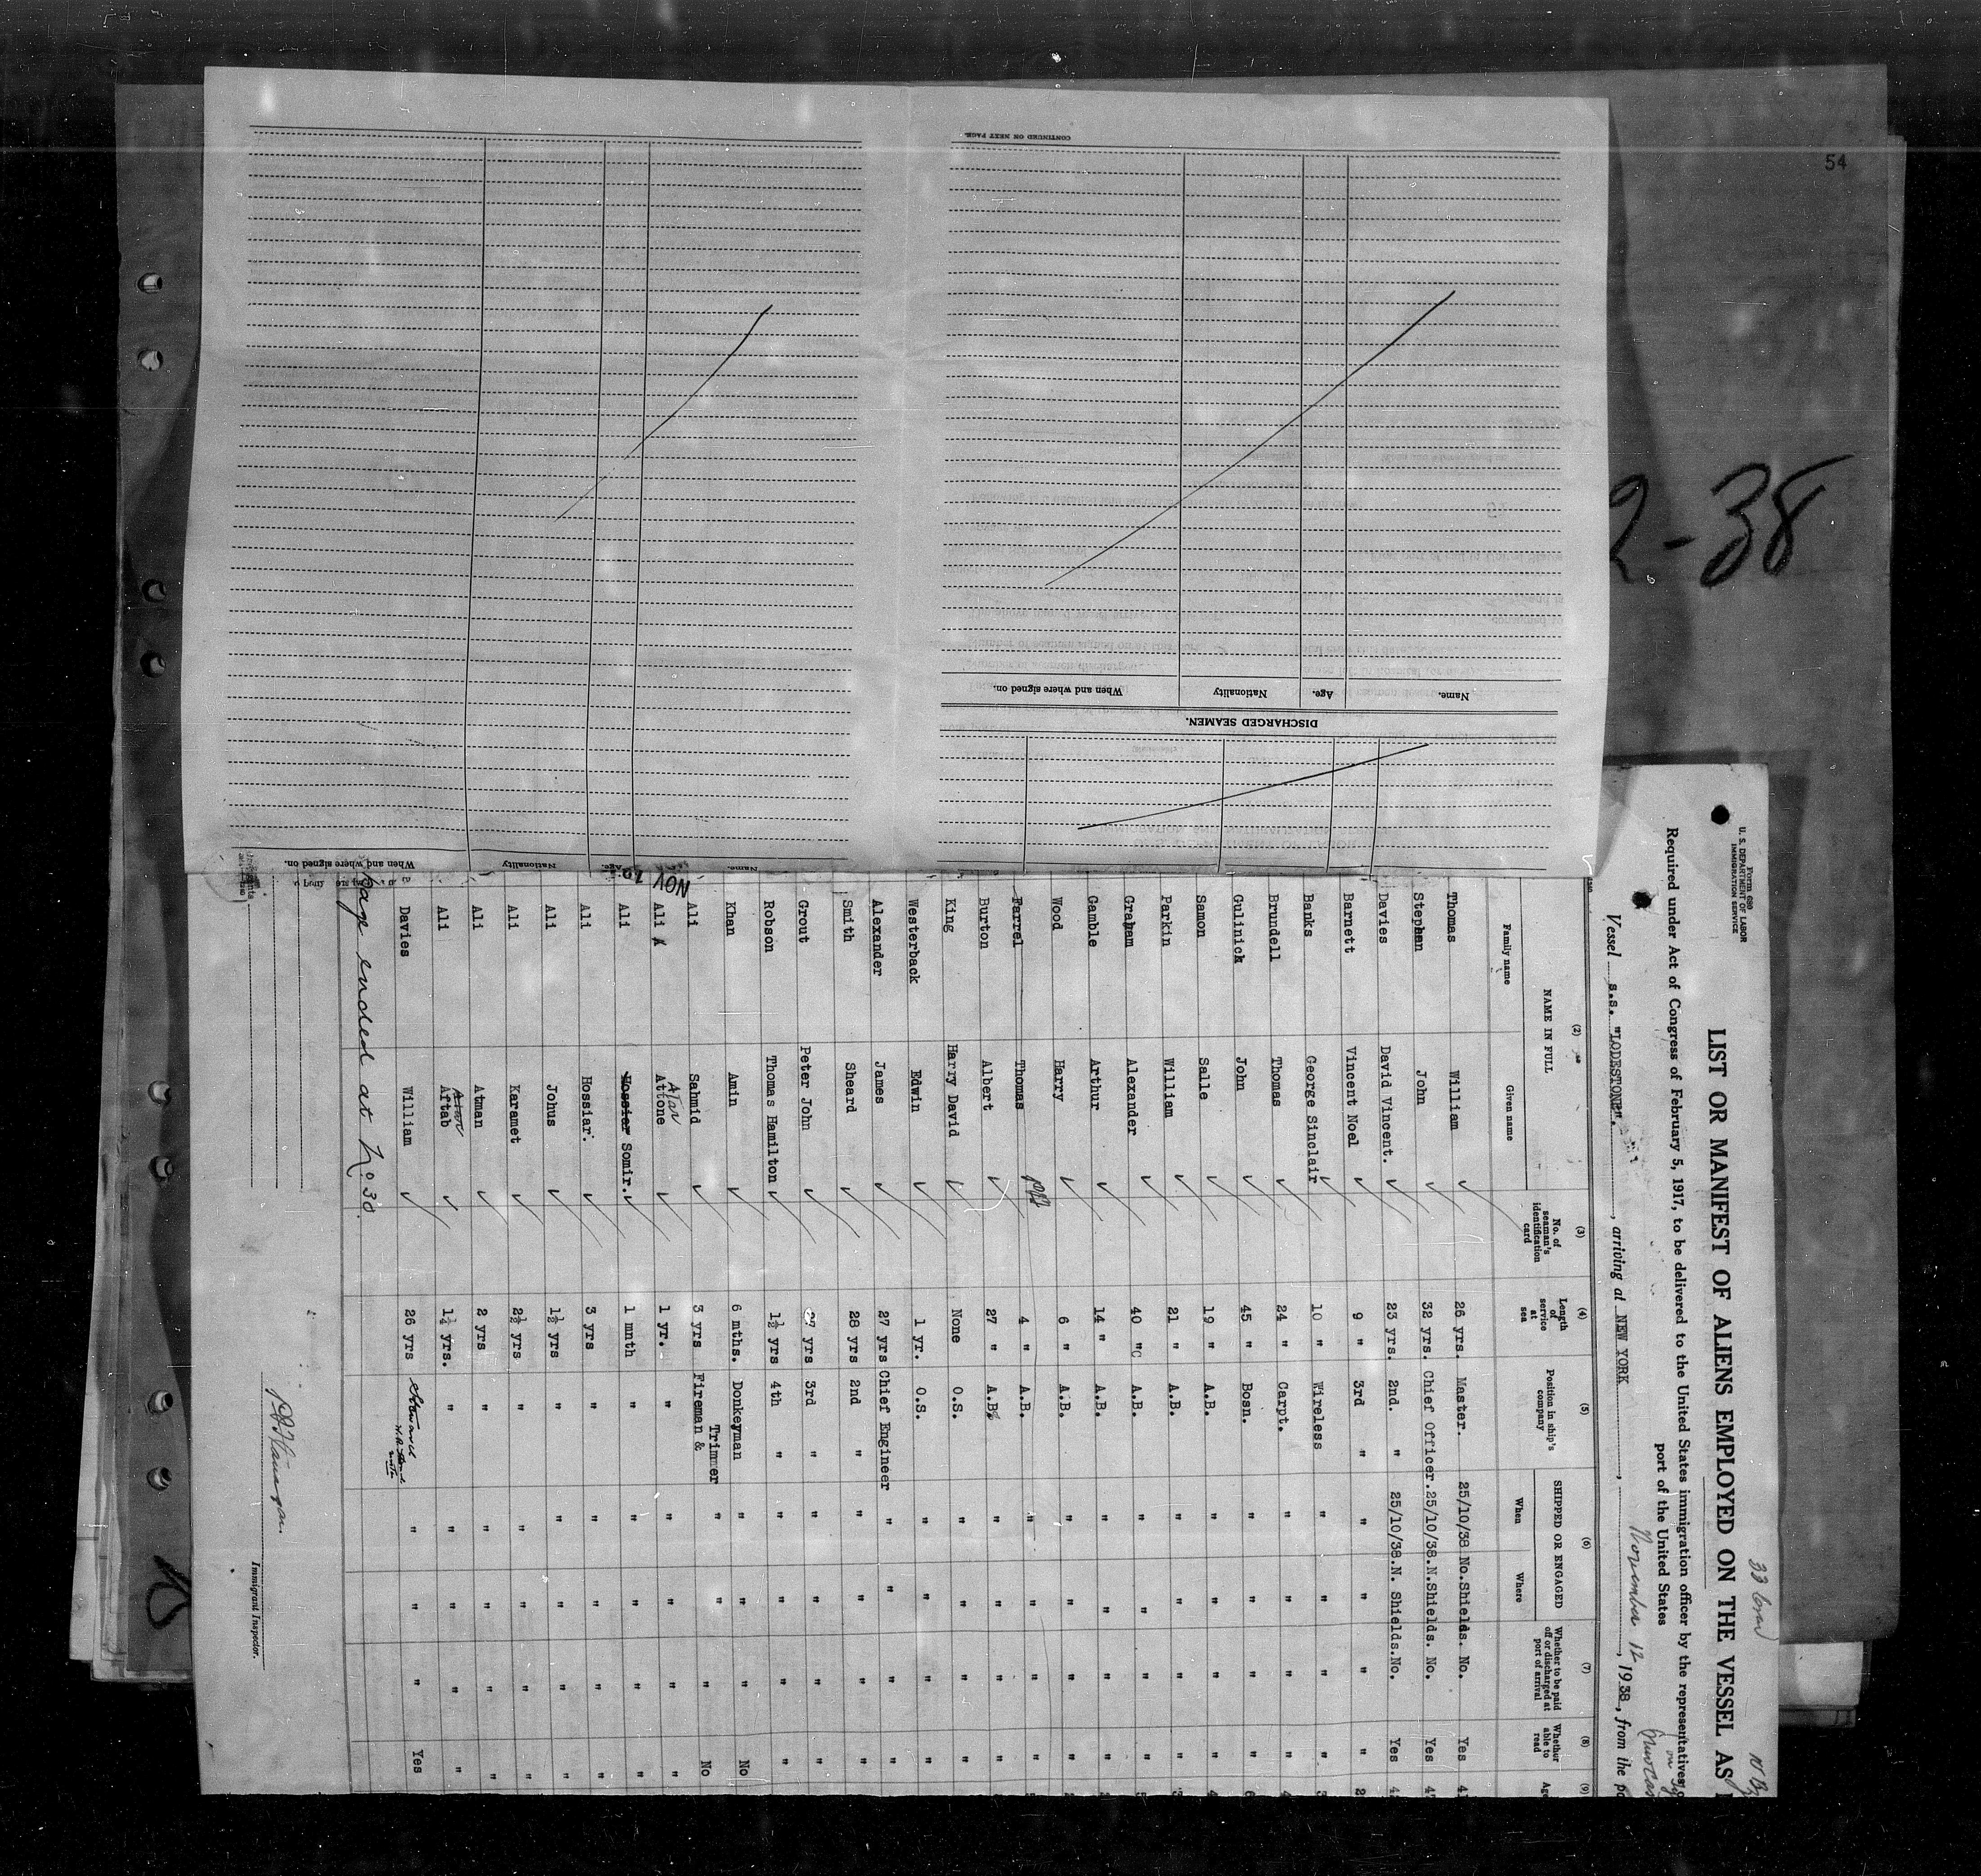 54
2-38
CONTINUED ON NEXT PAGE.
Name. Age. Nationality When and where signed on.
DISCHARGED SEAMEN.
Name. Age. Nationality When and where signed on.
Form 680
U. S. DEPARTMENT OF LABOR
IMMIGRATION SERVICE
LIST OR MANIFEST OF ALIENS EMPLOYED ON THE VESSEL AS
Required under Act of Congress of February 5, 1917, to be delivered to the United States immigration officer by the representatives
port of the United States
Vessel s.s. "LODESTONE". , arriving at NEW YORK , November 12, 1938, from the
(2) (3) (4) (5) (6) (7) (8) (9)
NAME IN FULL
Family name Given name
No. of seaman's identification card
Length of service at sea
Position in ship's company
SHIPPED OR ENGAGED
When Where
Whether to be paid off or discharged at port of arrival
Whether able to read
Thomas William 26 yrs. Master. 25/10/38 No.Shields. No. Yes
Stephen John 32 yrs. Chief Officer. 25/10/38. N.Shields. No. Yes
Davies David Vincent. 23 yrs. 2nd. " 25/10/38. N. Shields. No. Yes
Barnett Vincent Noel 9 " 3rd " " " " "
Banks George Sinclair 10 " Wireless " " " "
Brundell Thomas 24 " Carpt. " " " "
Gulinick John 45 " Bosn. " " " "
Samon Salle 19 " A.B. " " " "
Parkin William 21 " A.B. " " " "
Graham Alexander 40 " A.B. " " " "
Gamble Arthur 14 " A.B. " " " "
Wood Harry 6 " A.B. " " " "
Farrel Thomas 4 " A.B. " " " "
Burton Albert 27 " A.B. " " " "
King Harry David None O.S. " " " "
Westerback Edwin 1 yr. O.S. " " " "
Alexander James 27 yrs Chief Engineer " " " "
Smith Sheard 28 yrs 2nd " " " " "
Grout Peter John 27 yrs 3rd " " " " "
Robson Thomas Hamilton 1½ yrs 4th " " " " "
Khan Amin 6 mths. Donkeyman " " " No
Ali Sahmid 3 yrs Fireman & Trimmer " " " No
Ali Attone 1 yr. " " " " "
Ali Hossier Somir. 1 mnth " " " " "
Ali Hossiar. 3 yrs " " " " "
Ali Johus 1½ yrs " " " " "
Ali Karamet 2½ yrs " " " " "
Ali Atman 2 yrs " " " " "
Ali Aftab 1¼ yrs. " " " " "
Davies William 26 yrs Steward " " " Yes
page ended at No. 30.
NOV
Immigrant Inspector.